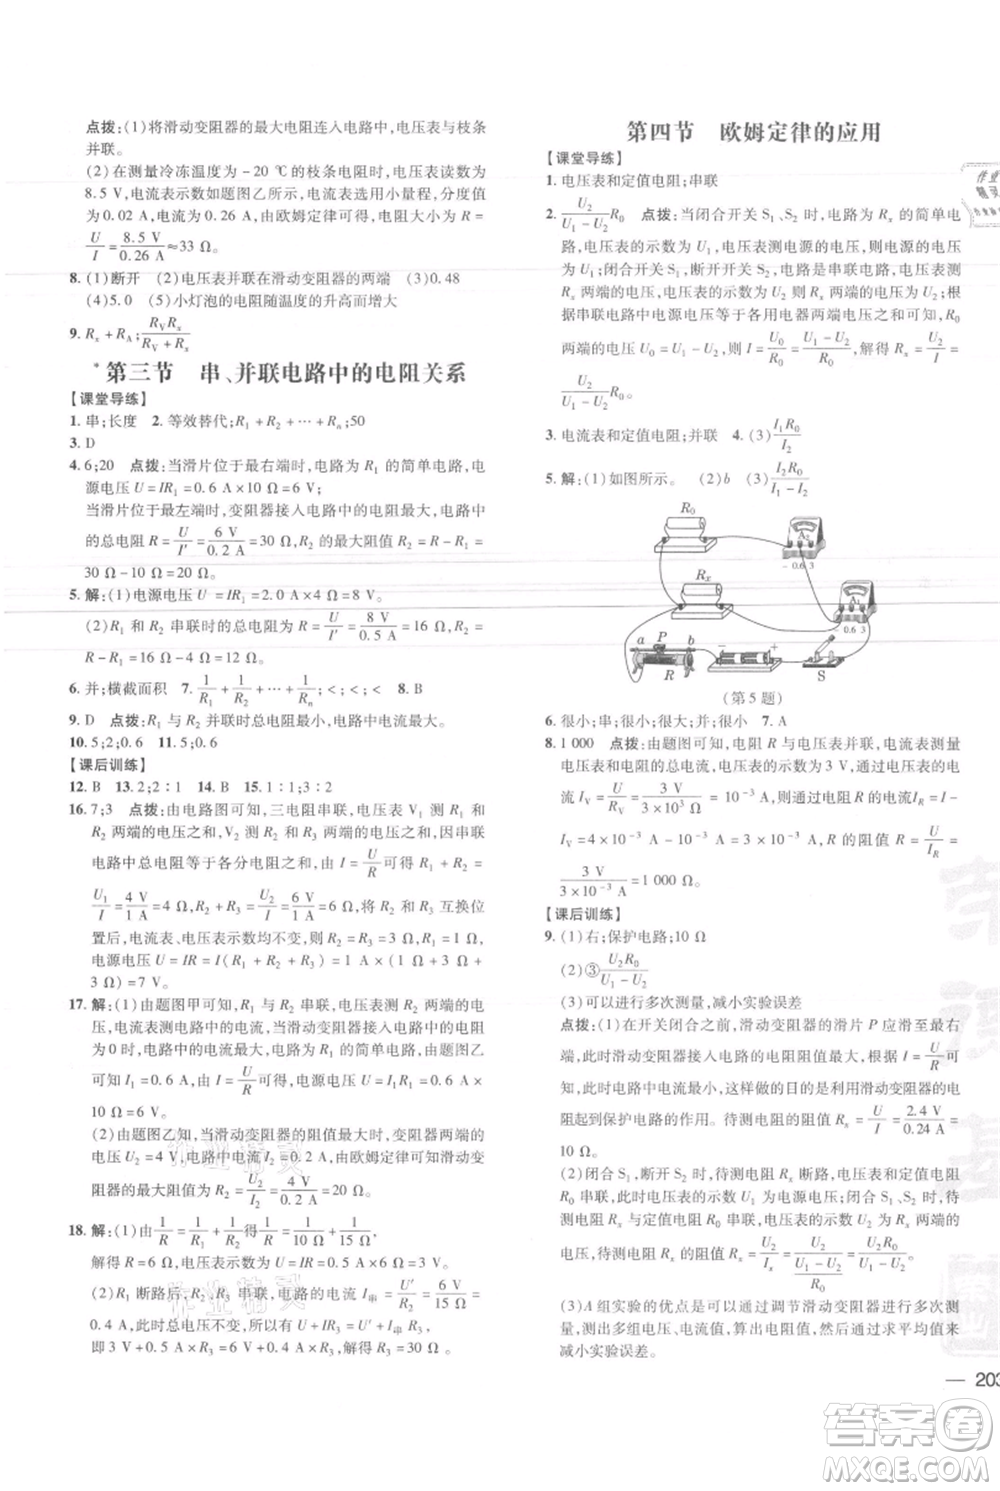 点拨:(1)将滑动变阻器的最大电阻连入电路中,电压表与枝条
并联。
(2)在测量冷冻温度为-20 ℃的枝条时,电压表读数为
8.5 V,电流表示数如题图乙所示,选择小量程,分度值
为0.02 A,电流为0.26 A,由欧姆定律可得,枝条电阻R=
U/I=8.5 V/0.26 A≈33 Ω。
8. (1)断开 (2)电压表并联在滑动变阻器的两端 (3)0.48
(4)5.0 (5)小灯泡的电阻随温度的升高而增大
9. Rx+RA;RVRx/(RV+Rx)
*第三节 串、并联电路中的电阻关系
【课堂导练】
1. 串;长度 2. 等效替代;R1+R2+…+Rn;50
3. D
4. 6;20 点拨:当滑片位于最右端时,电路为R1的简单电路,电
源电压U=IR1=0.6 A×10 Ω=6 V;
当滑片位于最左端时,变阻器接入电路中的电阻最大,电路中
的总电阻R=U/I′=6 V/0.2 A=30 Ω,R2的最大阻值R2=R-R1=
30 Ω-10 Ω=20 Ω。
5. 解:(1)电源电压U=IR1=2.0 A×4 Ω=8 V。
(2)R1和R2串联时的总电阻R=U/I′=8 V/0.5 A=16 Ω,R2=
R-R1=16 Ω-4 Ω=12 Ω。
6. 并;横截面积 7. 1/R1+1/R2+…+1/Rn;< 8. B
9. D 点拨:R1与R2并联时总电阻最小,电路中电流最大。
10. 5;2;0.6 11. 5;0.6
【课后训练】
12. B 13. 2;2∶1 14. B 15. 1∶1;3∶2
16. 7;3 点拨:由电路图可知,三电阻串联,电压表V1测R2和
R2两端的电压之和,V2测R2和R3两端的电压之和,因串联
电路中总电阻等于各分电阻之和,由I=U/R可得R1+R2=
U1/I=4 V/1 A=4 Ω,R2+R3=U2/I=6 V/1 A=6 Ω,将R2和R3互换位
置后,电流表、电压表示数均不变,则有:R1+R3=4 Ω,则R2=
R3=3 Ω,电源电压U=IR总=I(R1+R2+R3)=1 A×(4 Ω+
3 Ω)=7 V。
17. 解:(1)由题图甲可知,R1与R2串联,电压表测R2两端的电
压,电流表测电路中的电流,当滑动变阻器接入电路中的电阻
为0时,电路中的电流最大,电压表的示数为0,由题图乙可
知,电路中的电流I1=0.6 A,由I=U/R可得,电源电压U=I1R1=0.6 A×
10 Ω=6 V。
(2)由题图乙知,当滑动变阻器的阻值最大时,变阻器两端的电
压为U2=4 V,电路中的电流I2=0.2 A,由欧姆定律可知滑动变
阻器的最大阻值为R2=U2/I2=4 V/0.2 A=20 Ω。
18. 解:(1)由1/R=1/R1+1/R2,得1/R=1/10 Ω+1/15 Ω,
解得R=6 Ω,电源电压为U=IR=0.5 A×6 Ω=3 V。
(2)R1断路后、R2、R3串联,电路的电流I串=U′/R2=6 V/15 Ω=
0.4 A,此时总电压不变,所以有U+IR3=U′+I串R3,
即3 V+0.5 A×R3=6 V+0.4 A×R3,解得R3=30 Ω。
第四节 欧姆定律的应用
【课堂导练】
1. 电压表和定值电阻;串联
2. U2/(U1-U2)R0 点拨:当闭合开关S1、S2时,电路为Rx的简单电
路,电压表的示数为U1,电压表测电源的电压,则电源的电压
为U1;闭合开关S1,断开开关S2时,电路是串联电路,电压表测
Rx两端的电压,电压表的示数为U2,则Rx两端的电压为U2;
根据串联电路中电源的电压等于各用电器两端电压之和,R0
两端的电压U0=U1-U2,则I=U0/R0=(U1-U2)/R0,解得Rx=U2/I=
U2/(U1-U2)R0。
3. 电流表和定值电阻;并联 4. (3)I1R0/I2
5. 解:(1)如图所示。 (2)b (3)I2R0/(I1-I2)
R0
A2
- 0.6 3
Rx
A1
0.6 3
a P b
R
S
(第5题)
6. 很小;串;很小;很大;并;很小 7. A
8. 1 000 点拨:由题图可知,电阻R与电压表并联,电流表测量
它们的总电流,因电压表的示数为3 V,则通过电压表的电
流IV=U/RV=3 V/3×10³ Ω=10⁻³ A,通过电阻R的电流IR=I-
IV=4×10⁻³ A-10⁻³ A=3×10⁻³ A,R的阻值R=U/IR=
3 V/3×10⁻³ A=1 000 Ω。
【课后训练】
9. (1)右;保护电路;10 Ω
(2)③U2R0/(U1-U2)
(3)可以进行多次测量,减小实验误差
点拨:(1)在开关闭合之前,滑动变阻器的滑片P应滑至最右
端,此时滑动变阻器接入电路的电阻阻值最大,根据I=U/R可
知,此时电路中电流最小,这样做的目的是利用滑动变阻器的电
阻起到保护电路的作用。待测电阻的阻值Rx=U/I=2.4 V/0.24 A=
10 Ω。
(2)闭合S1,断开S2时,待测电阻Rx断路,电压表与定值电阻
R0串联,此时电压表的示数U1为电源电压;再闭合S2,待测电
阻Rx与定值电阻R0串联,电压表的示数U2为Rx两端的
电压,待测电阻的阻值Rx=U2/I=U2/((U1-U2)/R0)=U2R0/(U1-U2)。
(3)A组实验的优点是可以通过调节滑动变阻器进行多次测
量,测出多组电压、电流值,算出电阻值,通过求平均值来
减小实验误差。
— 203
答案卷
MXQE.COM
作业精灵